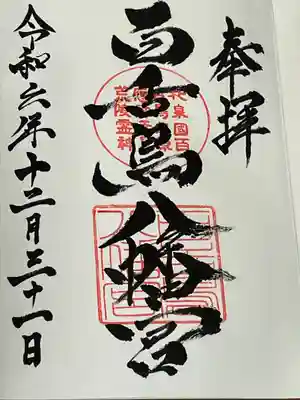 奉拝
百舌鳥八幡宮
令和六年十二月三十一日